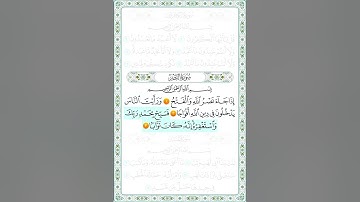 سُورَةُ النَّصْرِ
بِسْمِ اللَّهِ الرَّحْمَٰنِ الرَّحِيمِ
إِذَا جَاءَ نَصْرُ اللَّهِ وَالْفَتْحُ ۝ وَرَأَيْتَ النَّاسَ
يَدْخُلُونَ فِي دِينِ اللَّهِ أَفْوَاجًا ۝ فَسَبِّحْ بِحَمْدِ رَبِّكَ
وَاسْتَغْفِرْهُ إِنَّهُ كَانَ تَوَّابًا ۝